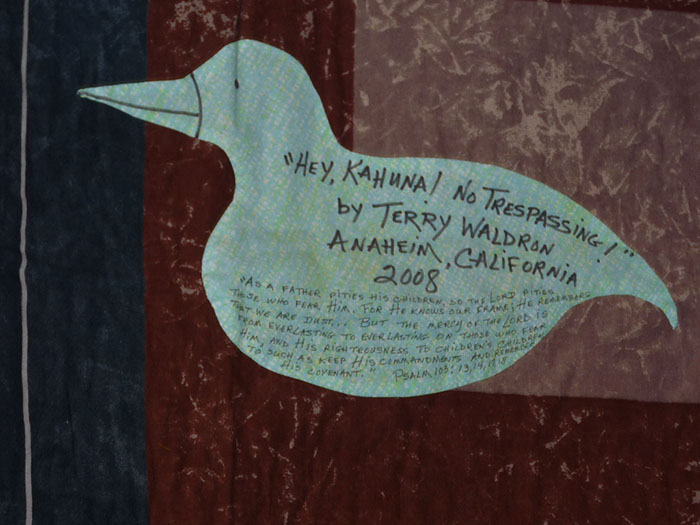 "HEY, KAHUNA! NO TRESPASSING!"
by TERRY WALDRON
ANAHEIM, CALIFORNIA
2008
"AS A FATHER PITIES HIS CHILDREN, SO THE LORD PITIES
THOSE WHO FEAR HIM. FOR HE KNOWS OUR FRAME; HE REMEMBERS
THAT WE ARE DUST... BUT THE MERCY OF THE LORD IS
FROM EVERLASTING TO EVERLASTING ON THOSE WHO FEAR
HIM, AND HIS RIGHTEOUSNESS TO CHILDREN'S CHILDREN
TO SUCH AS KEEP HIS COMMANDMENTS AND REMEMBER
HIS COVENANT." PSALM 103: 13, 14, 17, 18